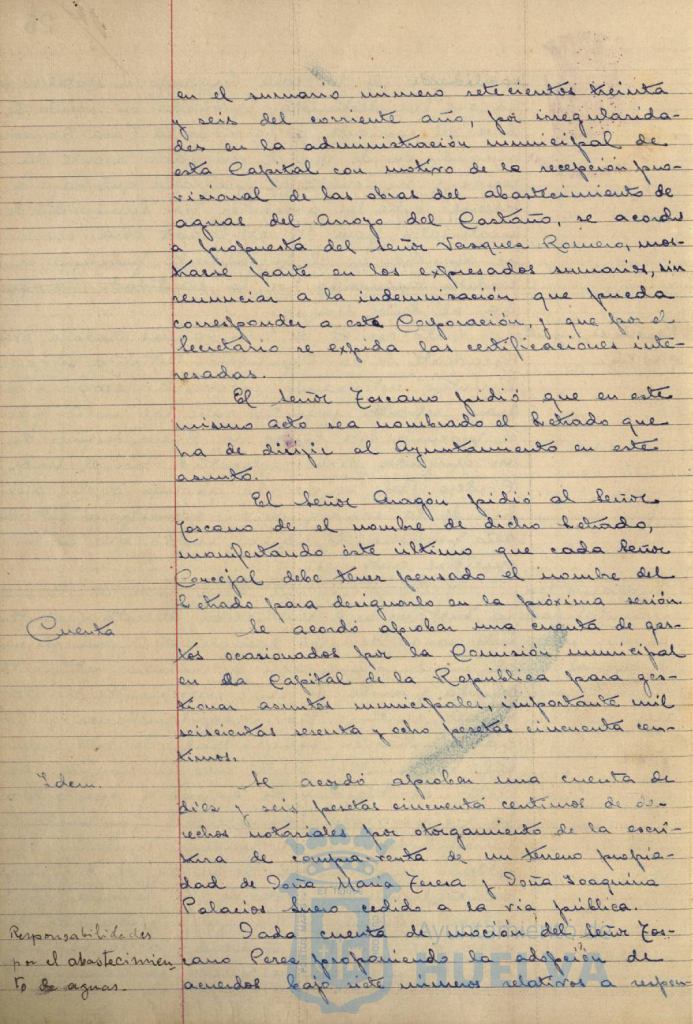 en el sumario número setecientos treinta
y seis del corriente año, por irregularida-
des en la administración municipal de
esta Capital con motivo de la recepción pro-
visional de las obras del abastecimiento de
aguas del Arroyo del Castaño, se acordó
a propuesta del Señor Vasquez Romero, mos-
trarse parte en los expresados sumarios, sin
renunciar a la indemnisación que pueda
corresponder a esta Corporación, y que por el
Secretario se expida las certificaciones inte-
resadas.
El Señor Toscano pidió que en este
mismo acto sea nombrado el Letrado que
ha de dirijir al Ayuntamiento en este
asunto.
El Señor Aragón pidió al Señor
Toscano de el nombre de dicho Letrado,
manifestando éste último que cada Señor
Concejal debe tener pensado el nombre del
Letrado para designarlo en la próxima sesión.
Cuenta
Se acordó aprobar una cuenta de gas-
tos ocasionados por la Comisión municipal
en la Capital de la República para ges-
tionar asuntos municipales, importante mil
seiscientas sesenta y ocho pesetas cincuenta cen-
timos.
Idem.
Se acordó aprobar una cuenta de
diez y seis pesetas cincuenta centimos de de-
rechos notariales por otorgamiento de la escri-
tura de compra-venta de un terreno propie-
dad de Doña Maria Teresa y Doña Joaquina
Palacios Suero cedido a la via pública.
Responsabilidades
por el abastecimien-
to de aguas.
Dada cuenta de moción del Señor Tos-
cano Perez proponiendo la adopción de
acuerdos bajo siete numeros relativos a respon-
Ayuntamiento de
HUELVA